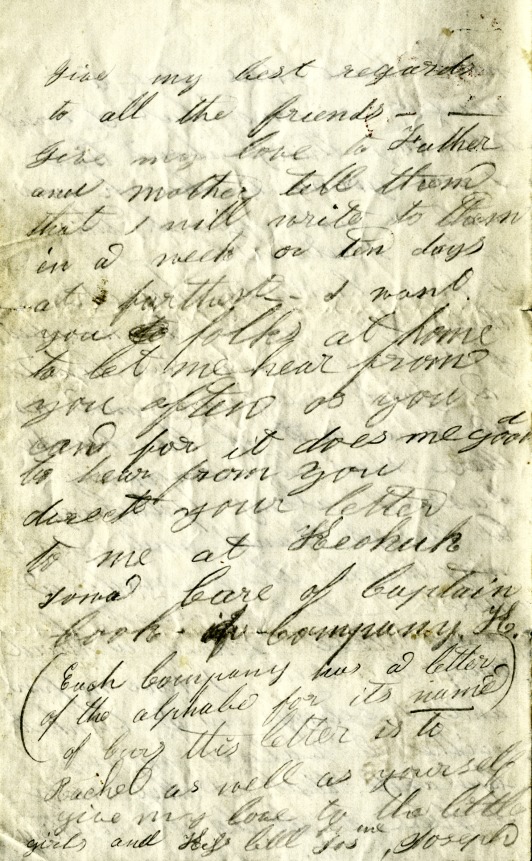 Give my best regards
to all the friends - -
Give my love to Father
and mother tell them
that I will write to them
in a week or ten days
at farthest - I want
you folks at home
to let me hear from
you often as you
can for it does me good
to hear from you
direct your letter
to me at Keokuk
Iowa Care of Captain
Cook - Company. H.
(Each Company has a letter
of the alphabe for its name)
of cors this letter is to
Rachel as well as yourself
give my love to the little
girls and tell for me, Joseph